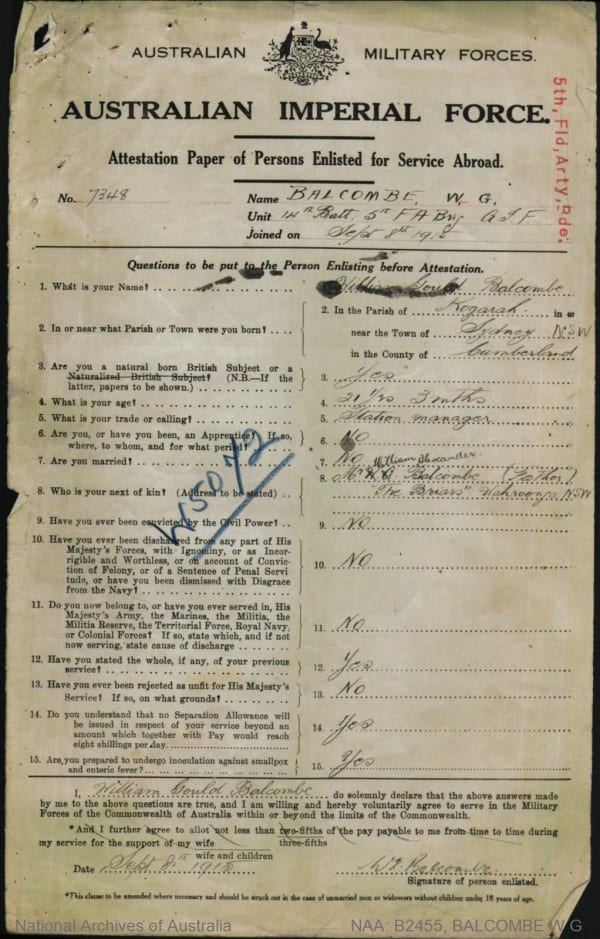 AUSTRALIAN MILITARY FORCES.
AUSTRALIAN IMPERIAL FORCE.
5th, Fld, Arty, Bde.
Attestation Paper of Persons Enlisted for Service Abroad.
No. 7348 Name BALCOMBE. W. G.
Unit 14th Batt. 5th F A Brig A.I.F.
Joined on Sept 8th 1915
Questions to be put to the Person Enlisting before Attestation.
1. What is your Name? William Gould Balcombe
2. In or near what Parish or Town were you born? 2. In the Parish of Kogarah in or
near the Town of Sydney NSW
in the County of Cumberland
3. Are you a natural born British Subject or a
Naturalized British Subject? (N.B.—If the
latter, papers to be shown.) 3. Yes
4. What is your age? 4. 21 Yrs 3 mths
5. What is your trade or calling? 5. Station manager
6. Are you, or have you been, an Apprentice? If so,
where, to whom, and for what period? 6. No
7. Are you married? 7. No
William Alexander
8. Who is your next of kin? (Address to be stated) 8. Mr W. A. Balcombe (Father)
"The Briars" Wahroonga NSW
W5072
9. Have you ever been convicted by the Civil Power? 9. No
10. Have you ever been discharged from any part of His
Majesty's Forces, with Ignominy, or as Incor-
rigible and Worthless, or on account of Convic-
tion of Felony, or of a Sentence of Penal Servi
tude, or have you been dismissed with Disgrace
from the Navy? 10. No
11. Do you now belong to, or have you ever served in, His
Majesty's Army, the Marines, the Militia, the
Militia Reserve, the Territorial Force, Royal Navy,
or Colonial Forces? If so, state which, and if not
now serving, state cause of discharge 11. No
12. Have you stated the whole, if any, of your previous
service? 12. Yes
13. Have you ever been rejected as unfit for His Majesty's
Service? If so, on what grounds? 13. No
14. Do you understand that no Separation Allowance will
be issued in respect of your service beyond an
amount which together with Pay would reach
eight shillings per day. 14. Yes
15. Are you prepared to undergo inoculation against smallpox
and enteric fever? 15. Yes
I, William Gould Balcombe do solemnly declare that the above answers made
by me to the above questions are true, and I am willing and hereby voluntarily agree to serve in the Military
Forces of the Commonwealth of Australia within or beyond the limits of the Commonwealth.
*And I further agree to allot not less than two-fifths of the pay payable to me from time to time during
three-fifths
my service for the support of my wife
wife and children
Date Sept 8th 1915 WG Balcombe
Signature of person enlisted.
*This clause to be amended where necessary and should be struck out in the case of unmarried men or widowers without children under 18 years of age.
National Archives of Australia NAA: B2455, BALCOMBE W G